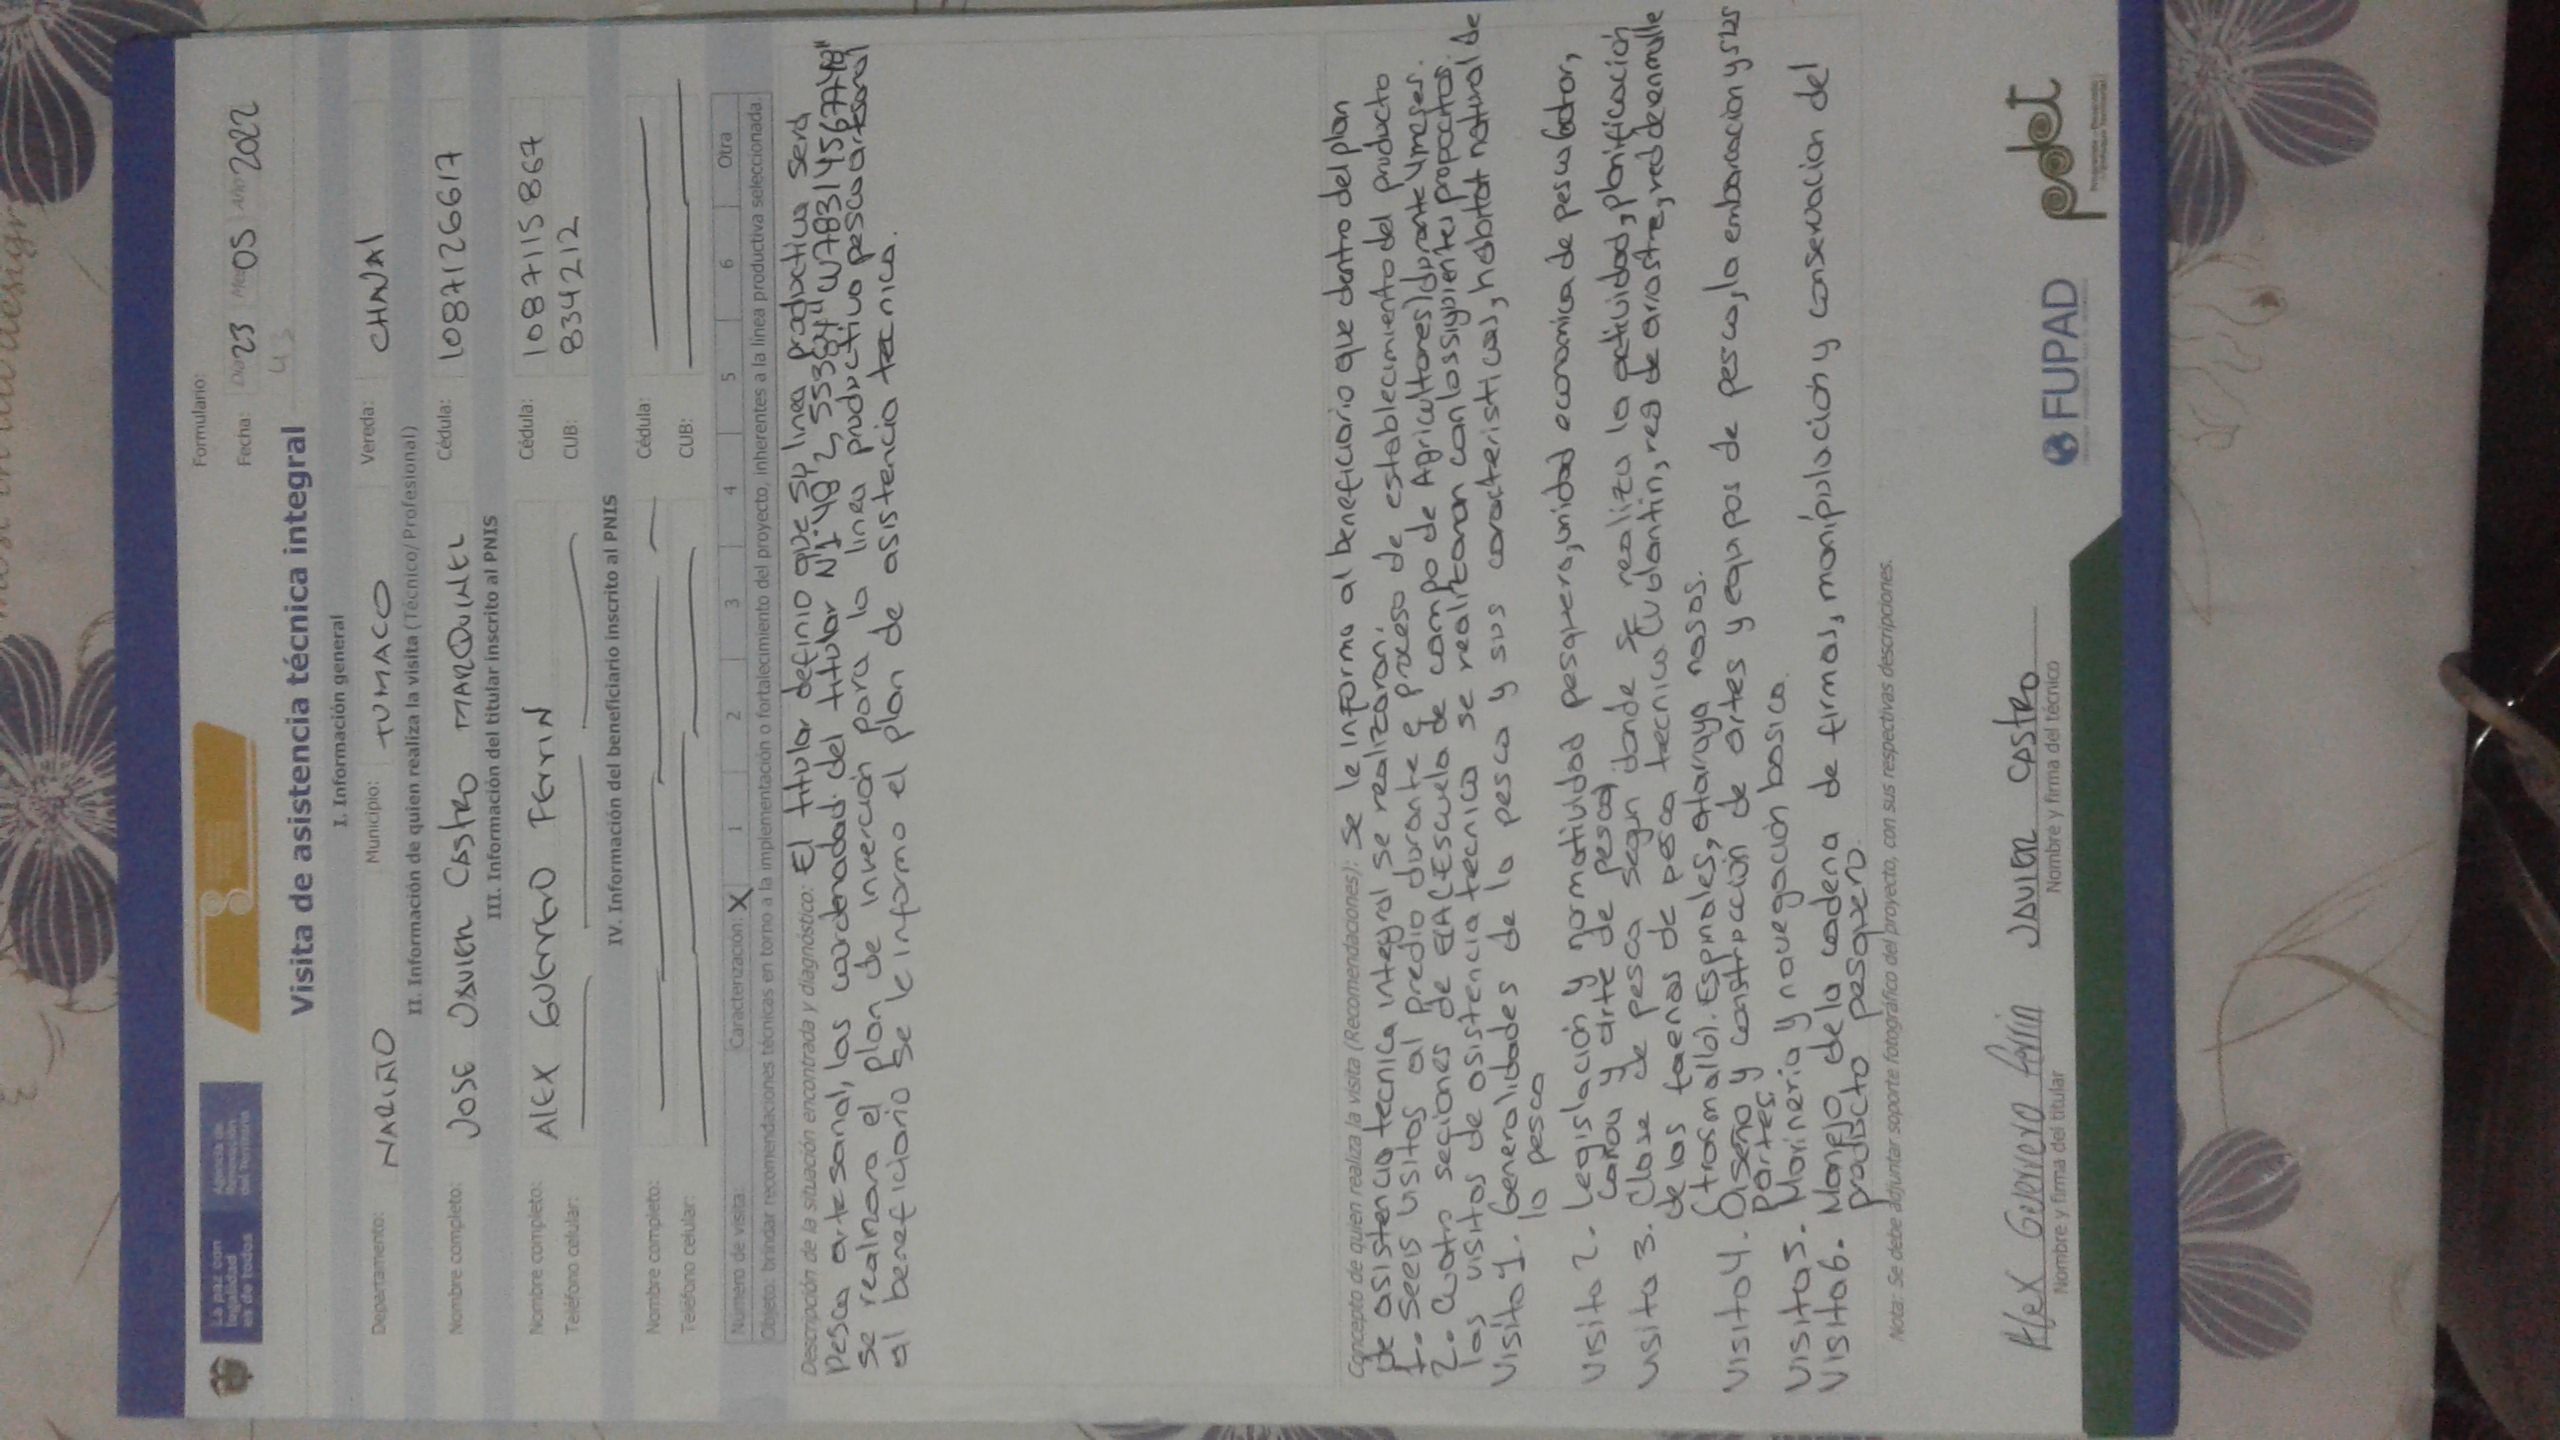 La paz con
legalidad
es de todos
Agencia de
Renovación
del Territorio
Formulario:
Fecha: Día 23 Mes 05 Año 2022
Visita de asistencia técnica integral
I. Información general
Departamento: NARIÑO Municipio: TUMACO Vereda: CHAJAL
II. Información de quien realiza la visita (Técnico/Profesional)
Nombre completo: JOSE JAVIER CASTRO MARQUINEZ Cédula: 1087126617
III. Información del titular inscrito al PNIS
Nombre completo: ALEX GUERRERO FERRIN Cédula: 1087115867
Teléfono celular: CUB: 834212
IV. Información del beneficiario inscrito al PNIS
Nombre completo: Cédula:
Teléfono celular: CUB:
Número de visita: Caracterización: X 1 2 3 4 5 6 Otra
Objeto: brindar recomendaciones técnicas en torno a la implementación o fortalecimiento del proyecto, inherentes a la línea productiva seleccionada.
Descripción de la situación encontrada y diagnóstico: El titular definio que su linea productiva sera
Pesca artesanal, las cordenadad. del titular
se realizara el plan de inverción para la linea productiva pesca artesanal
al beneficiario se le informo el plan de asistencia tecnica.
Concepto de quien realiza la visita (Recomendaciones): Se le informa al beneficiario que dentro del plan
de asistencia tecnica integral se realizaran:
1- Seeis visitas al predio durante e proceso de establecimiento del producto
2- Cuatro seciones de ECA (Escuela de campo de Agricultores) durante 4 meses.
las visitas de asistencia tecnica se realizaran con los siguientes propocitos
Visita 1. Generalidades de la pesca y sus caracteristicas, habitat natural de
la pesca
Visita 2- Legislación y normatividad pesquera, unidad economica de pesca (actor,
canoa y arte de pesca)
Visita 3. Clase de pesca segun donde se realiza la actividad, planificación
de las faenas de pesca tecnica (volantin, red de arrastre, red de enmalle
(trasmallo). Espinales, atarraya nasas.
Visita 4- Diseño y construcción de artes y equipos de pesca, la embarcacion y sus
partes,
Visita 5- Marineria y navegación basica.
Visita 6- Manejo de la cadena de firmas, manipulación y conservacion del
producto pesquero.
Nota: Se debe adjuntar soporte fotográfico del proyecto, con sus respectivas descripciones.
Alex Guerrero Ferrin JAVIER CASTRO
Nombre y firma del titular Nombre y firma del técnico
FUPAD
pdet